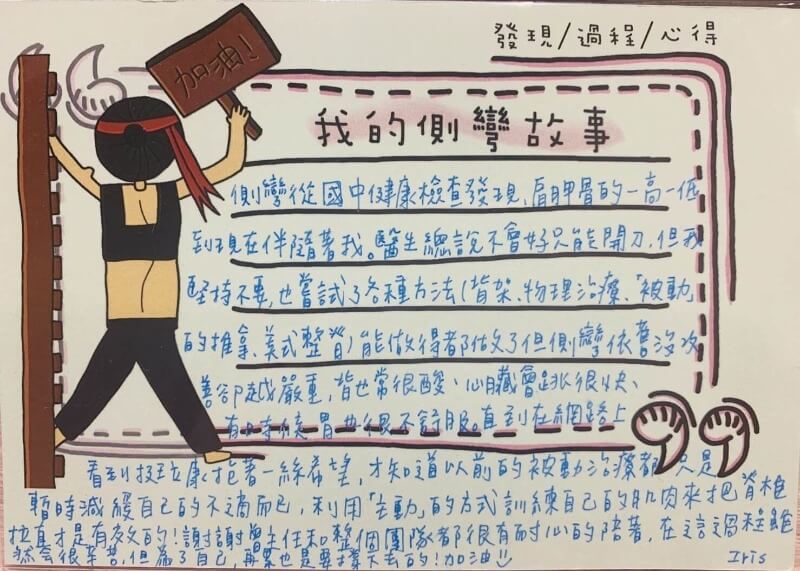 發現/過程/心得
加油!
我的側彎故事
側彎從國中健康檢查發現,肩胛骨的一高一低
到現在伴隨著我。醫生總說不會好只能開刀,但我
堅持不要,也嘗試了各種方法(背架、物理治療、「被動」
的推拿、美式整脊)能做得都做了但側彎依舊沒改
善卻越嚴重,背也常很酸、心臟會跳很快、
有時候胃也很不舒服。直到在網路上
看到技立康抱著一絲希望,才知道以前的被動治療都只是
暫時減緩自己的不適而已,利用「主動」的方式訓練自己的肌肉來把脊椎
拉直才是有效的!謝謝曾主任和整個團隊都很有耐心的陪著,在這過程雖
然會很辛苦,但為了自己,再累也是要撐下去的!加油
Iris